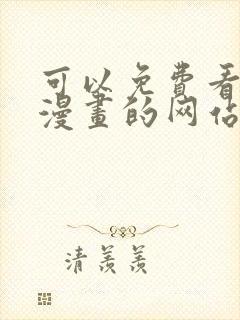 可以免费看
漫畫的网佔
清羡羡